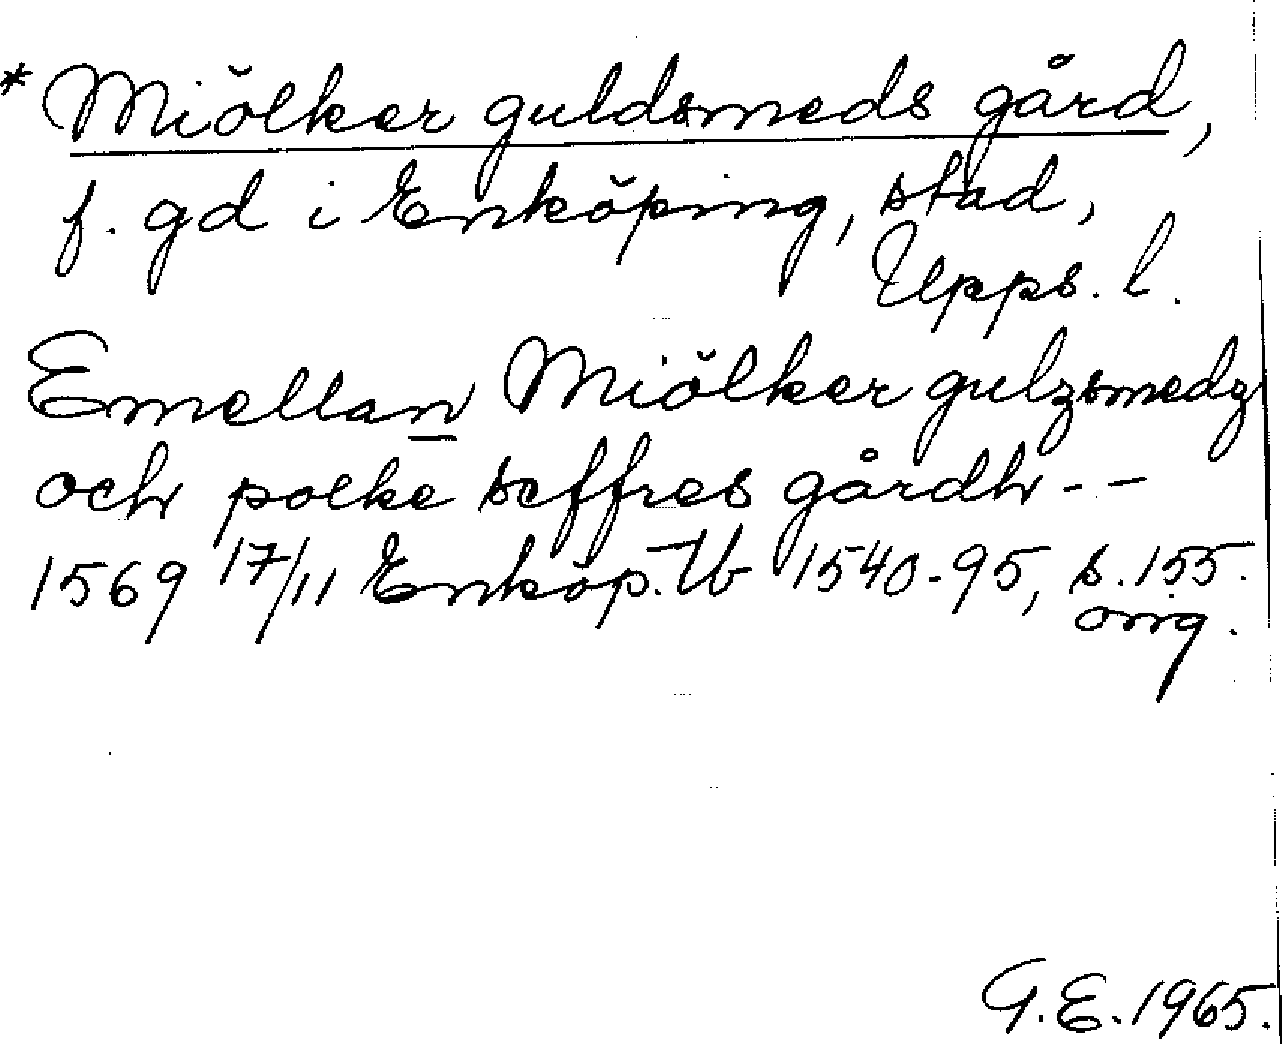 * Miölker guldsmeds gård,
f. gd i Enköping, stad,
Upps. l.
Emellan Miölker gulzsmedz
och polke seffres gårdh --
1569 17/11 Enköp. Tb 1540-95, s. 155.
orig.
G.E. 1965.